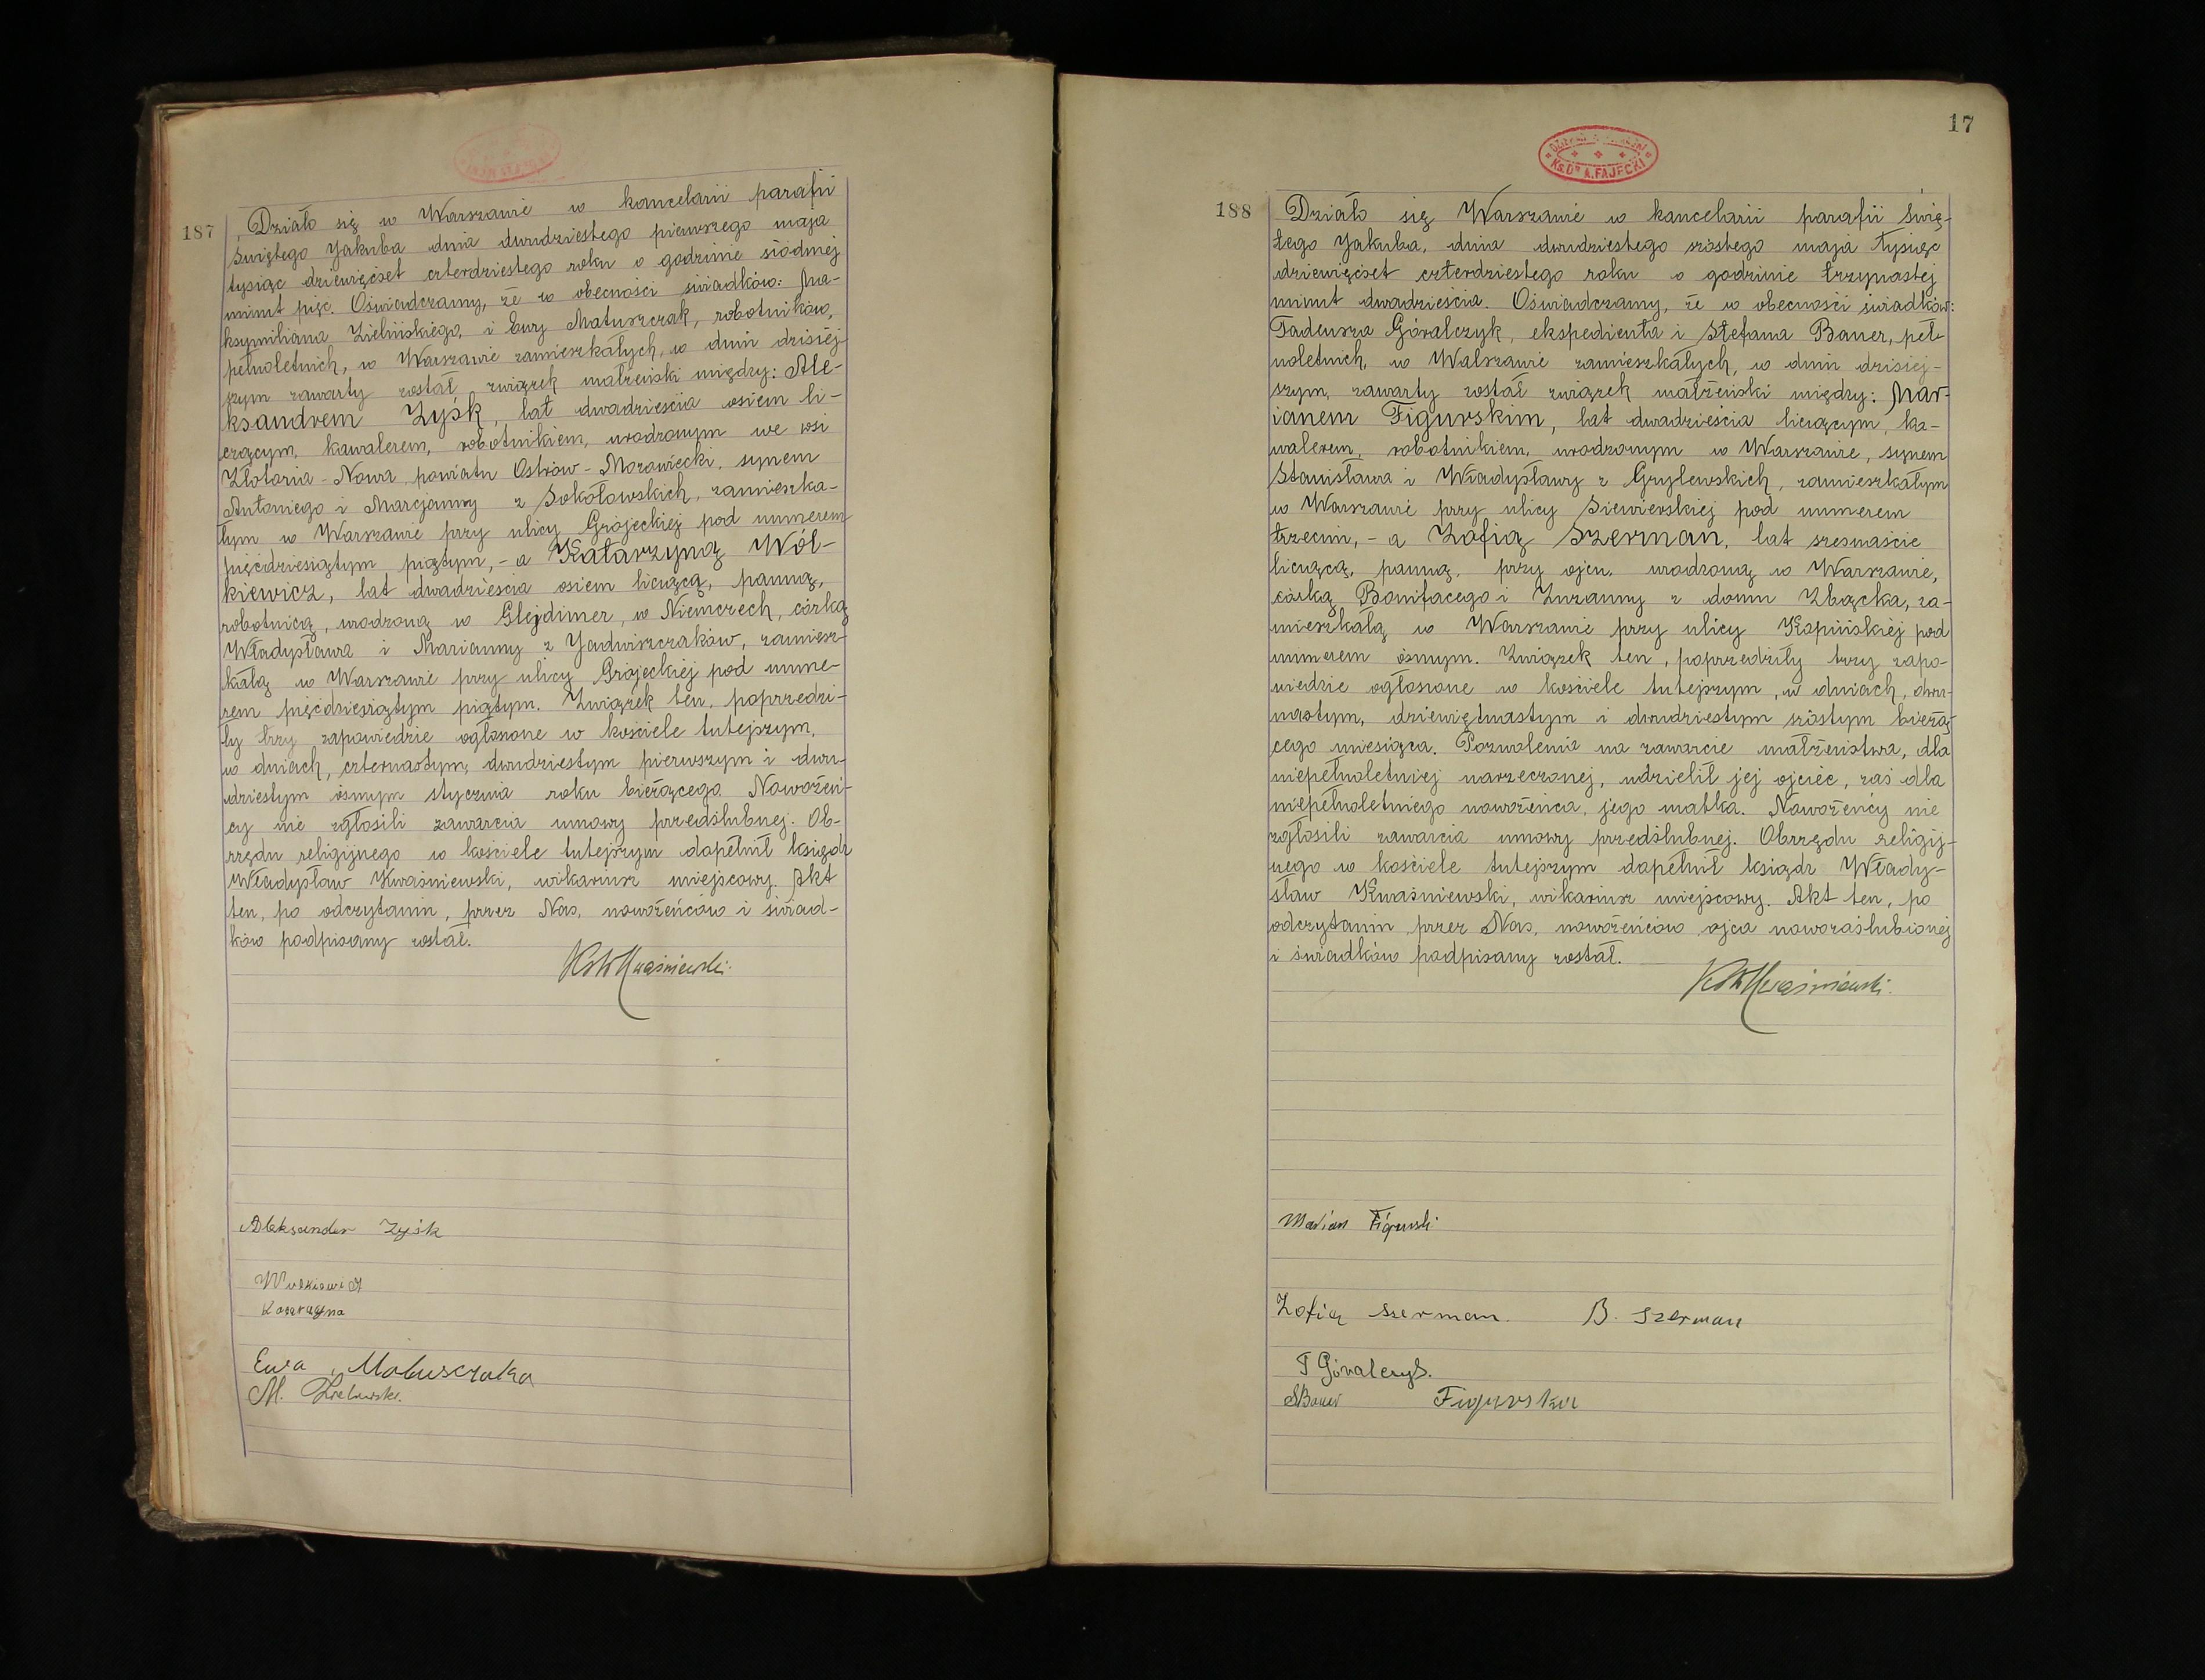 187
Działo się w Warszawie w kancelarii parafii
świętego Jakuba dnia dwudziestego pierwszego maja
tysiąc dziewięćset czterdziestego roku o godzinie siódmej
minut pięć. Oświadczamy, że w obecności świadków: Ma-
ksymiliana Zielińskiego, i Ewy Matuszczak, robotników,
pełnoletnich, w Warszawie zamieszkałych, w dniu dzisiej-
szym zawarty został związek małżeński między: Ale-
ksandrem Zyśk, lat dwadzieścia osiem li-
czącym, kawalerem, robotnikiem, urodzonym we wsi
Złotoria-Nowa, powiatu Ostrów-Mazowiecki, synem
Antoniego i Marcjanny z Sokołowskich, zamieszka-
łym w Warszawie przy ulicy Grójeckiej pod numerem
pięćdziesiątym piątym, - a Katarzyną Wol-
kiewicz, lat dwadzieścia osiem liczącą, panną,
robotnicą, urodzoną w Glejdimer, w Niemczech, córką
Władysława i Marianny z Jadwiszczaków, zamiesz-
kałą w Warszawie przy ulicy Grójeckiej pod nume-
rem pięćdziesiątym piątym. Związek ten, poprzedzi-
ły trzy zapowiedzie ogłoszone w kościele tutejszym,
w dniach, czternastym, dwudziestym pierwszym i dwu-
dziestym ósmym stycznia roku bieżącego. Nowożeń-
cy nie zgłosili zawarcia umowy przedślubnej. Ob-
rzędu religijnego w kościele tutejszym dopełnił ksiądz
Władysław Kwaśniewski, wikariusz miejscowy. Akt
ten, po odczytaniu, przez Nas, nowożeńców i świad-
ków podpisany został.
Kwaśniewski
Aleksander Zyśk
Ewa Matusczaka
M. Zieliński
17
Ks. Dr A. FAJĘCKI
188
Działo się Warszawie w kancelarii parafii świę-
tego Jakuba, dnia dwudziestego szóstego maja tysiąc
dziewięćset czterdziestego roku o godzinie trzynastej
minut dwadzieścia. Oświadczamy, że w obecności świadków:
Tadeusza Góralczyk, ekspedienta i Stefana Bauer, peł-
noletnich, w Walszawie zamieszkałych, w dniu dzisiej-
szym, zawarty został związek małżeński między: Mar-
ianem Figurskim, lat dwadzieścia liczącym, ka-
walerem, robotnikiem, urodzonym w Warszawie, synem
Stanisława i Władysławy z Grylewskich, zamieszkałym
w Warszawie przy ulicy Siewierskiej pod numerem
trzecim, - a Zofią Szerman, lat szesnaście
liczącą, panną, przy ojcu, urodzoną w Warszawie,
córką Bonifacego i Zuzanny z domu Zbącka, za-
mieszkałą w Warszawie przy ulicy Kopińskiej pod
numerem ósmym. Związek ten, poprzedziły trzy zapo-
wiedzie ogłoszone w kościele tutejszym, w dniach, dwu-
nastym, dziewiętnastym i dwudziestym szóstym bieżą-
cego miesiąca. Pozwolenia na zawarcie małżeństwa, dla
niepełnoletniej narzeczonej, udzielił jej ojciec, zaś dla
niepełnoletniego nowożeńca, jego matka. Nowożeńcy nie
zgłosili zawarcia umowy przedślubnej. Obrzędu religij-
nego w kościele tutejszym dopełnił ksiądz Włady-
sław Kwaśniewski, wikariusz miejscowy. Akt ten, po
odczytaniu przez Nas, nowożeńców, ojca nowozaślubionej
i świadków podpisany został.
Kwaśniewski
Marian Figurski
Zofią Szerman. B. Szerman
T Góralczyk.
SBauer Figurska